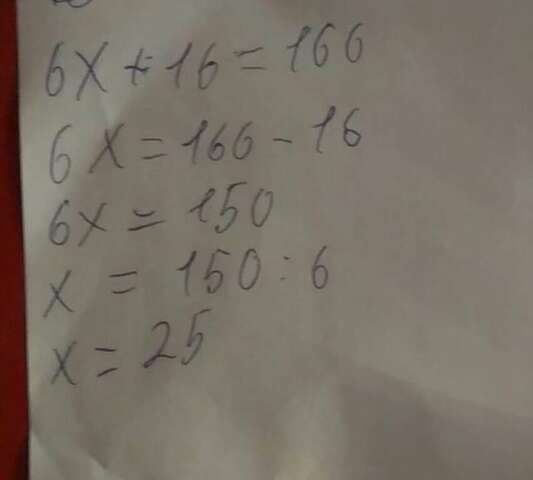 6x + 16 = 166
6x = 166 - 16
6x = 150
x = 150 : 6
x = 25